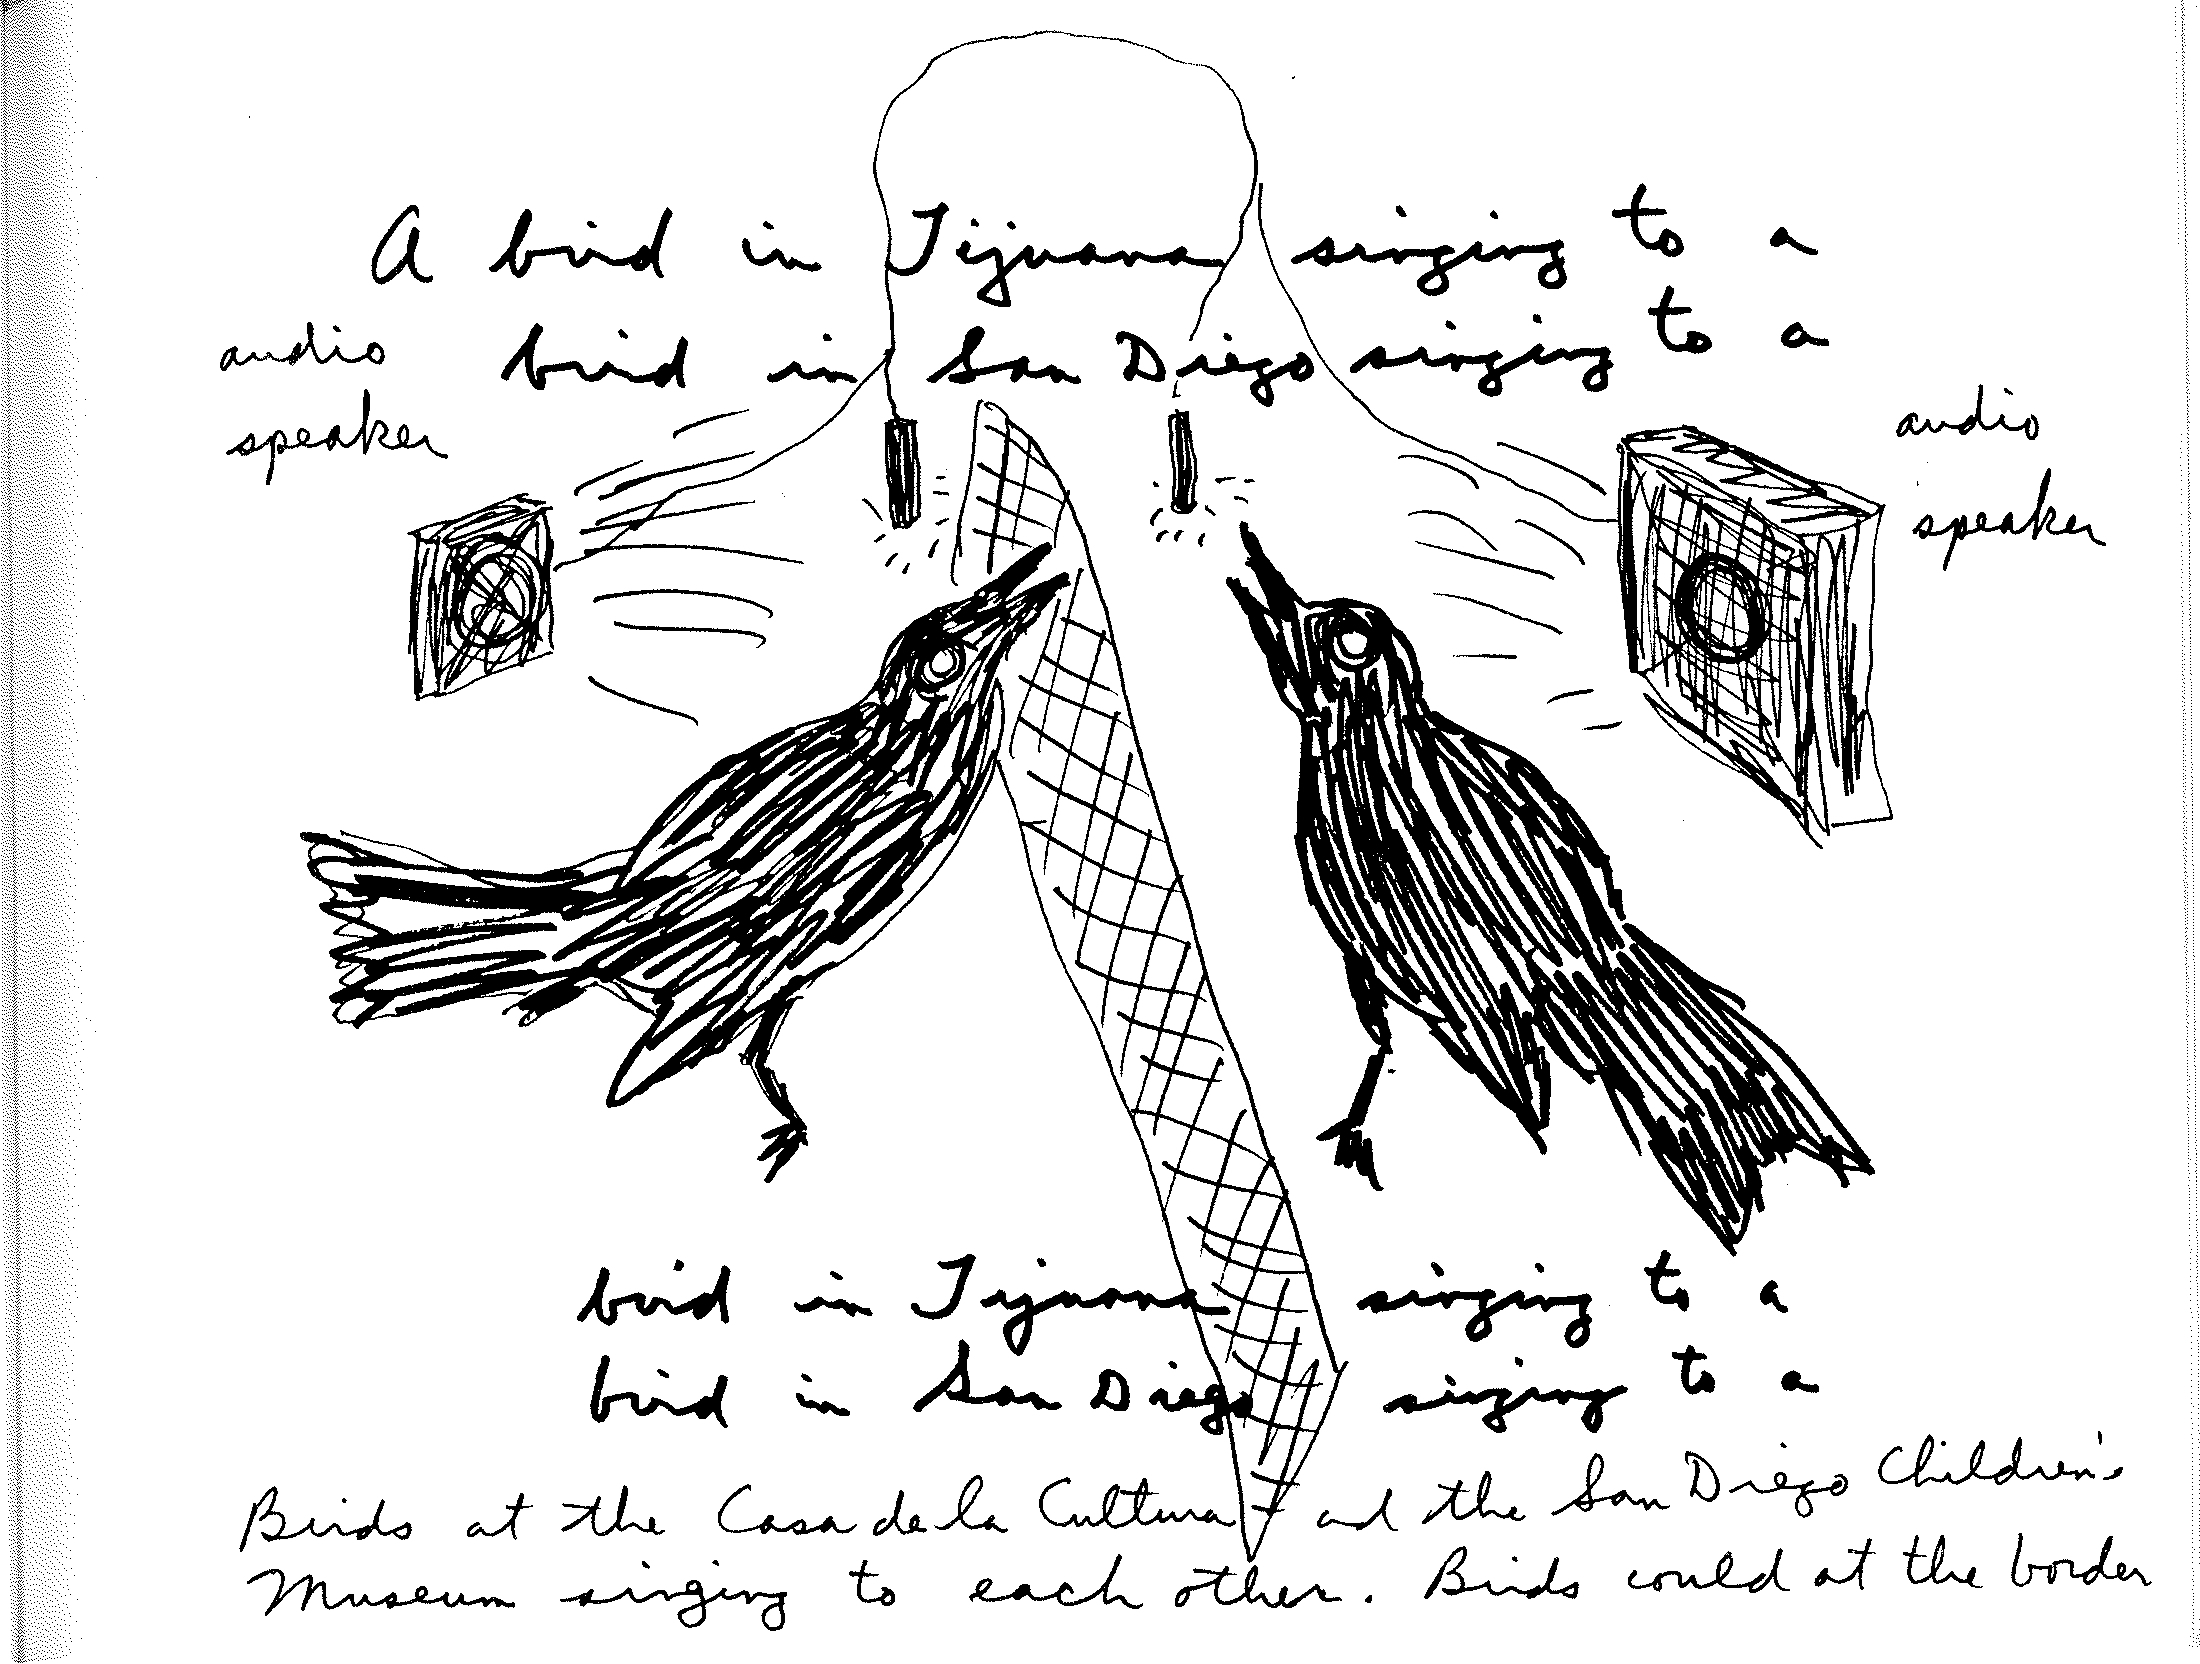 A bird in Tijuana singing to a
bird in San Diego singing to a
audio
speaker
audio
speaker
bird in Tijuana singing to a
bird in San Diego singing to a
Birds at the Casa de la Cultura and the San Diego Children's
Museum singing to each other. Birds could at the border